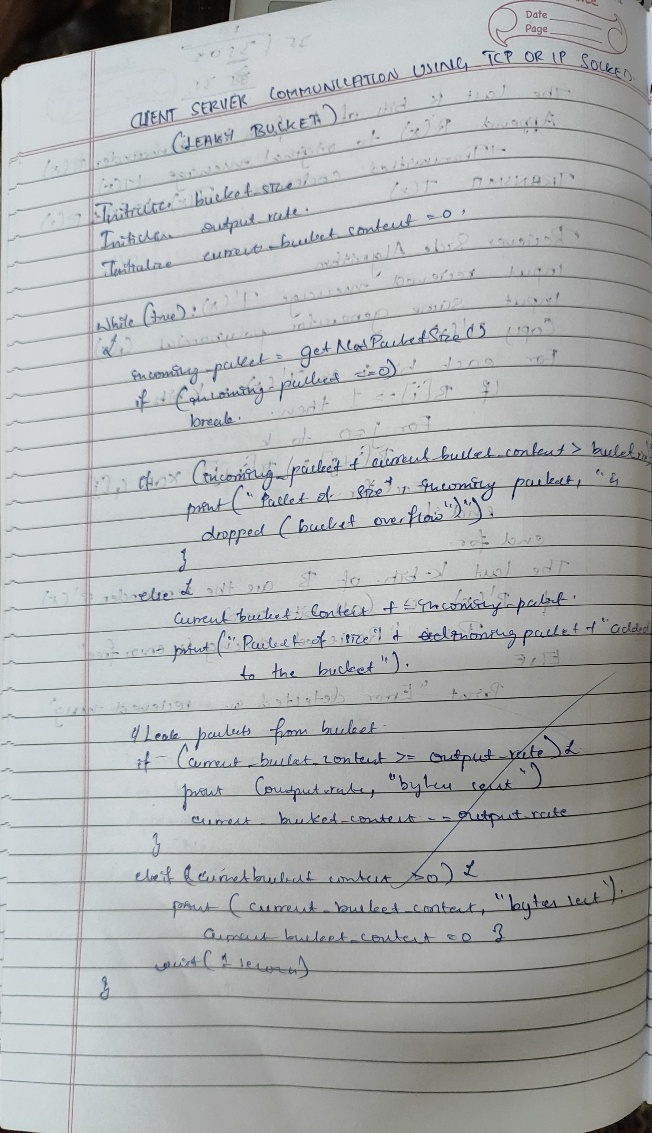 Date
Page
CLIENT SERVER COMMUNICATION USING TCP OR IP SOCKED
(LEAKY BUCKET)
Initialize bucket size
Initialize output rate.
Initialize current bucket content = 0.
while (true):
{
incoming-packet = getNextPacketSize()
if (incoming-packet == 0)
break.
if (incoming-packet + current bucket content > bucket
print ("Packet of size +, incoming packet, "
dropped (bucket overflow")").
}
else {
current bucket content + = incoming-packet.
print ("Packet of size" + incoming packet + "added
to the bucket").
// Leak packets from bucket
if (current_bucket_content >= output_rate) {
print (output rate, "bytes sent")
current bucket-content -= output-rate
}
else if (current bucket content >0) {
print (current_bucket_content, "bytes sent").
current bucket_content = 0 }
wait (1 second)
}